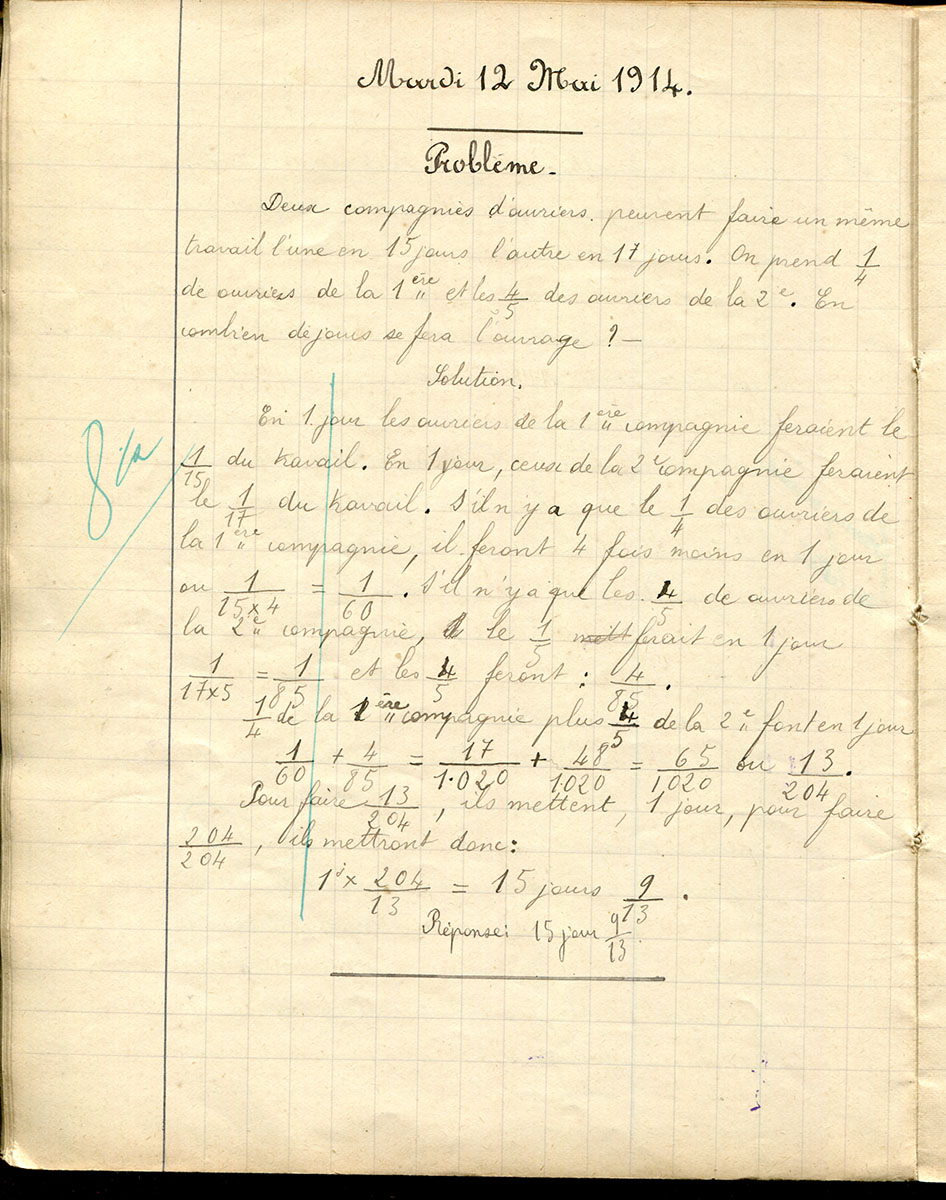 Mardi 12 Mai 1914.
Problème.
Deux compagnies d'ouvriers peuvent faire un même
travail l'une en 15 jours l'autre en 17 jours. On prend 1/4
de ouvriers de la 1ère et les 4/5 des ouvriers de la 2e. En
combien de jours se fera l'ouvrage ? —
Solution.
En 1 jour les ouvriers de la 1ère compagnie feraient le
1/15 du travail. En 1 jour, ceux de la 2e compagnie feraient
le 1/17 du travail. S'il n'y a que le 1/4 des ouvriers de
la 1ère compagnie, il feront 4 fois moins en 1 jour
ou 1/15×4 = 1/60. S'il n'y a que les 4/5 de ouvriers de
la 2e compagnie, le 1/5 ferait en 1 jour
1/17×5 = 1/85 et les 4/5 feront : 4/85.
1/4 de la 1ère compagnie plus 4/5 de la 2e font en 1 jour
1/60 + 4/85 = 17/1.020 + 48/1020 = 65/1,020 ou 13/204.
Pour faire 13/204, ils mettent, 1 jour, pour faire
204/204, ils mettront donc :
1j × 204/13 = 15 jours 9/13.
Réponse : 15 jour 9/13
8